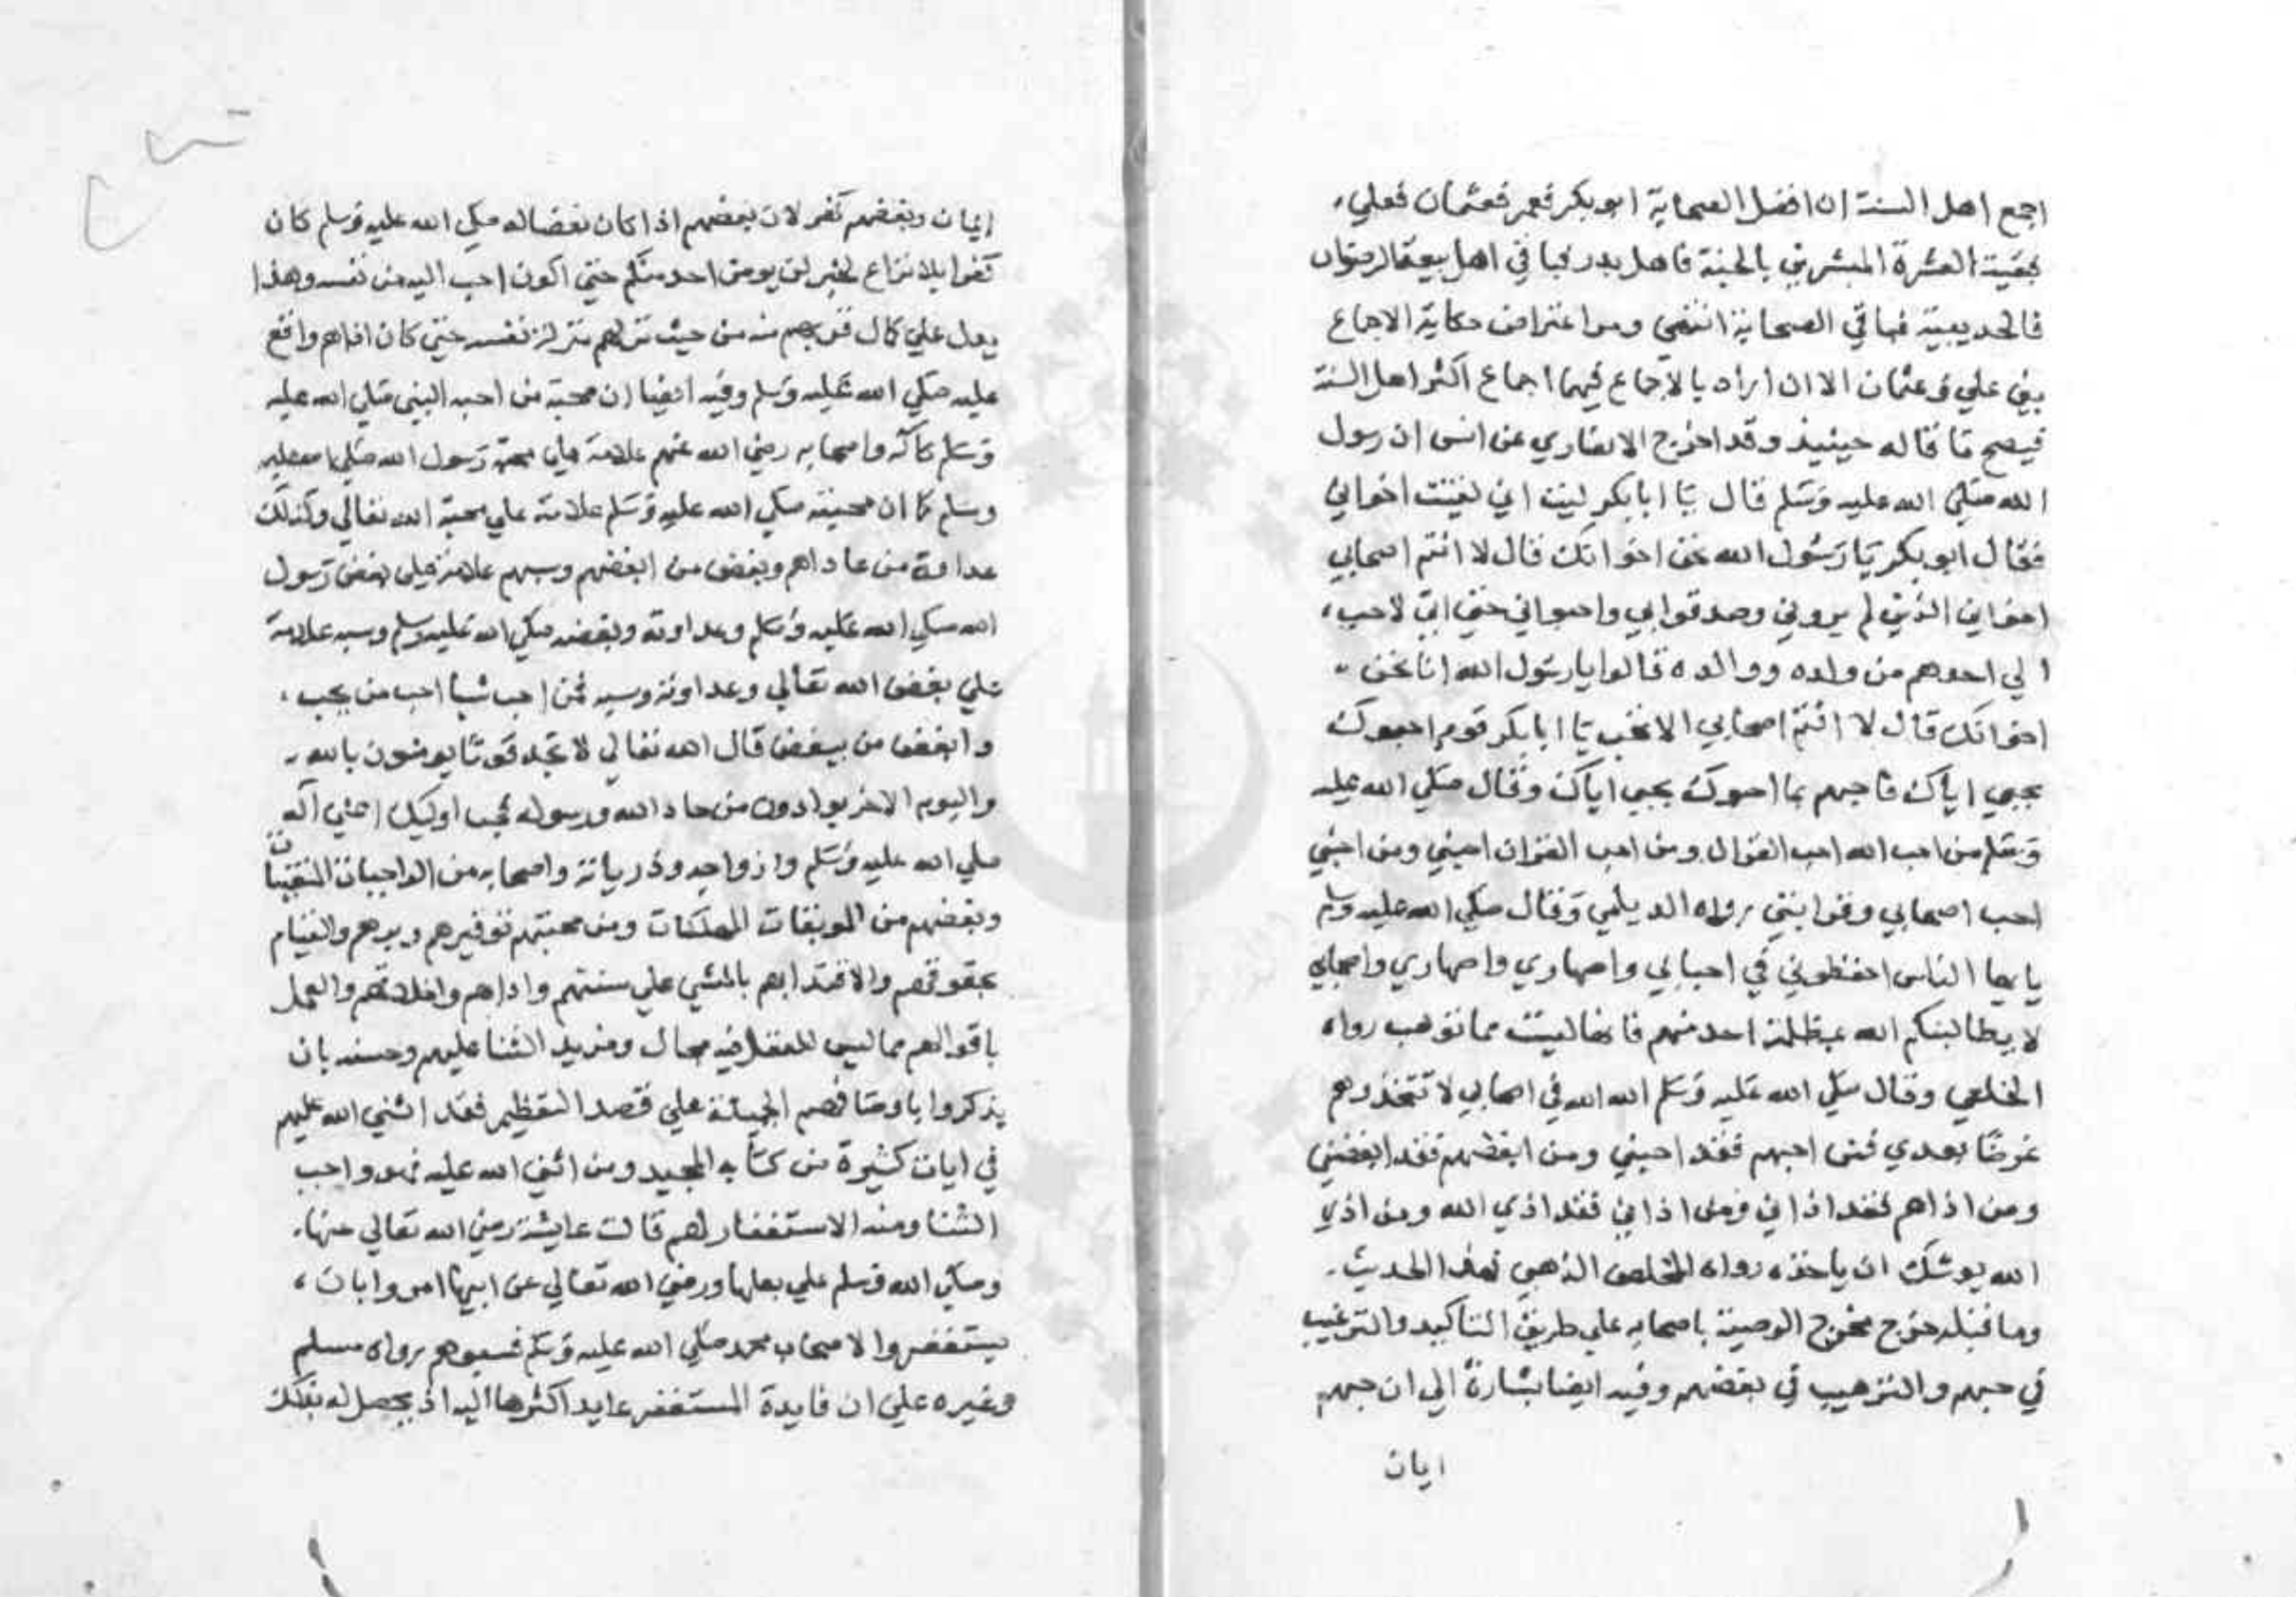 اجمع اهل السنة ان افضل الصحابة ابو بكر فعمر فعثمان فعلي
فبقية العشرة المبشرين بالجنة فاهل بدر فباقي اهل بيعة الرضوان
فالحديبية فباقي الصحابة انتهي ومر اعتراض حكاية الاجماع
بين علي وعثمان الا ان اراد بالاجماع فيهما اجماع اكثر اهل السنة
فيصح ما قاله حينيذ وقد اخرج الانصاري عن انس ان رسول
الله صلي الله عليه وسلم قال يا ابا بكر ليت اني لقيت اخواني
فقال ابو بكر يا رسول الله نحن اخوانك قال لا انتم اصحابي
اخواني الذين لم يروني وصدقوا بي واحبواني حتي اني لاحب
الي احدهم من ولده ووالده قالوا يا رسول الله انا نحن
اخوانك قال لا انتم اصحابي الا تحب يا ابا بكر قوم احبوك
بحبي اياك فاحبهم بما احبوك بحبي اياك وقال صلي الله عليه
وسلم من احب الله احب القران ومن احب القران احبني ومن احبني
احب اصحابي وقرابتي رواه الديلمي وقال صلي الله عليه وسلم
يا ايها الناس احفظوني في احبابي واصهاري واصهاري واصحابي
لا يطالبنكم الله بمظلمة احد منهم فانها ليست مما توهب رواه
الخلعي وقال صلي الله عليه وسلم الله الله في اصحابي لا تتخذوهم
غرضا بعدي فمن احبهم فقد احبني ومن ابغضهم فقد ابغضني
ومن اذاهم فقد اذاني ومن اذاني فقد اذي الله ومن اذي
الله يوشك ان ياخذه رواه المخلص الذهبي فهذا الحديث
وما قبله خرج مخرج الوصية باصحابه علي طريق التاكيد والترغيب
في حبهم والترهيب في بغضهم وفيه ايضا بشارة الي ان حبهم
ايمان
ايمان وبغضهم كفر لان بغضهم اذا كان بغضا له صلي الله عليه وسلم كان
كفرا بلا نزاع لخبر لن يومن احد منكم حتي اكون احب اليه من نفسه وهذا
يدل علي كمال قربهم منه من حيث نزلهم منزلة نفسه حتي كان اذاهم واقع
عليه صلي الله عليه وسلم وفيه ايضا ان محبة من احبه النبي صلي الله عليه
وسلم كآله واصحابه رضي الله عنهم علامة علي محبة رسول الله صلي الله عليه
وسلم كما ان محبته صلي الله عليه وسلم علامة علي محبة الله تعالي وكذلك
عداوة من عاداهم وبغض من ابغضهم وسبهم علامة علي بغض رسول
الله صلي الله عليه وسلم وعداوته وبغضه صلي الله عليه وسلم وسبه علامة
علي بغض الله تعالي وعداوته وسبه فمن احب شيا احب من يحب
وابغض من يبغض قال الله تعالي لا تجد قوما يومنون بالله
واليوم الاخر يوادون من حاد الله ورسوله فحب اوليك اعني آله
صلي الله عليه وسلم وازواجه وذرياته واصحابه من الواجبات المتعينات
وبغضهم من الموبقات المهلكات ومن محبتهم توقيرهم وبرهم والقيام
بحقوقهم والاقتدا بهم بالمشي علي سنتهم وادابهم واخلاقهم والعمل
باقوالهم مما ليس للعقل فيه مجال ومزيد الثنا عليهم وحسنه بان
يذكروا باوصافهم الجميلة علي قصد التعظيم فقد اثني الله عليهم
في ايات كثيرة من كتابه المجيد ومن اثني الله عليه فهو واجب
الثنا ومنه الاستغفار لهم قالت عايشة رضي الله تعالي عنها
وصلي الله وسلم علي بعلها ورضي الله تعالي عن ابيها امروا بان
يستغفروا لاصحاب محمد صلي الله عليه وسلم فسبوهم رواه مسلم
وغيره علي ان فايدة المستغفر عايد اكثرها اليه اذ يحصل له بذلك